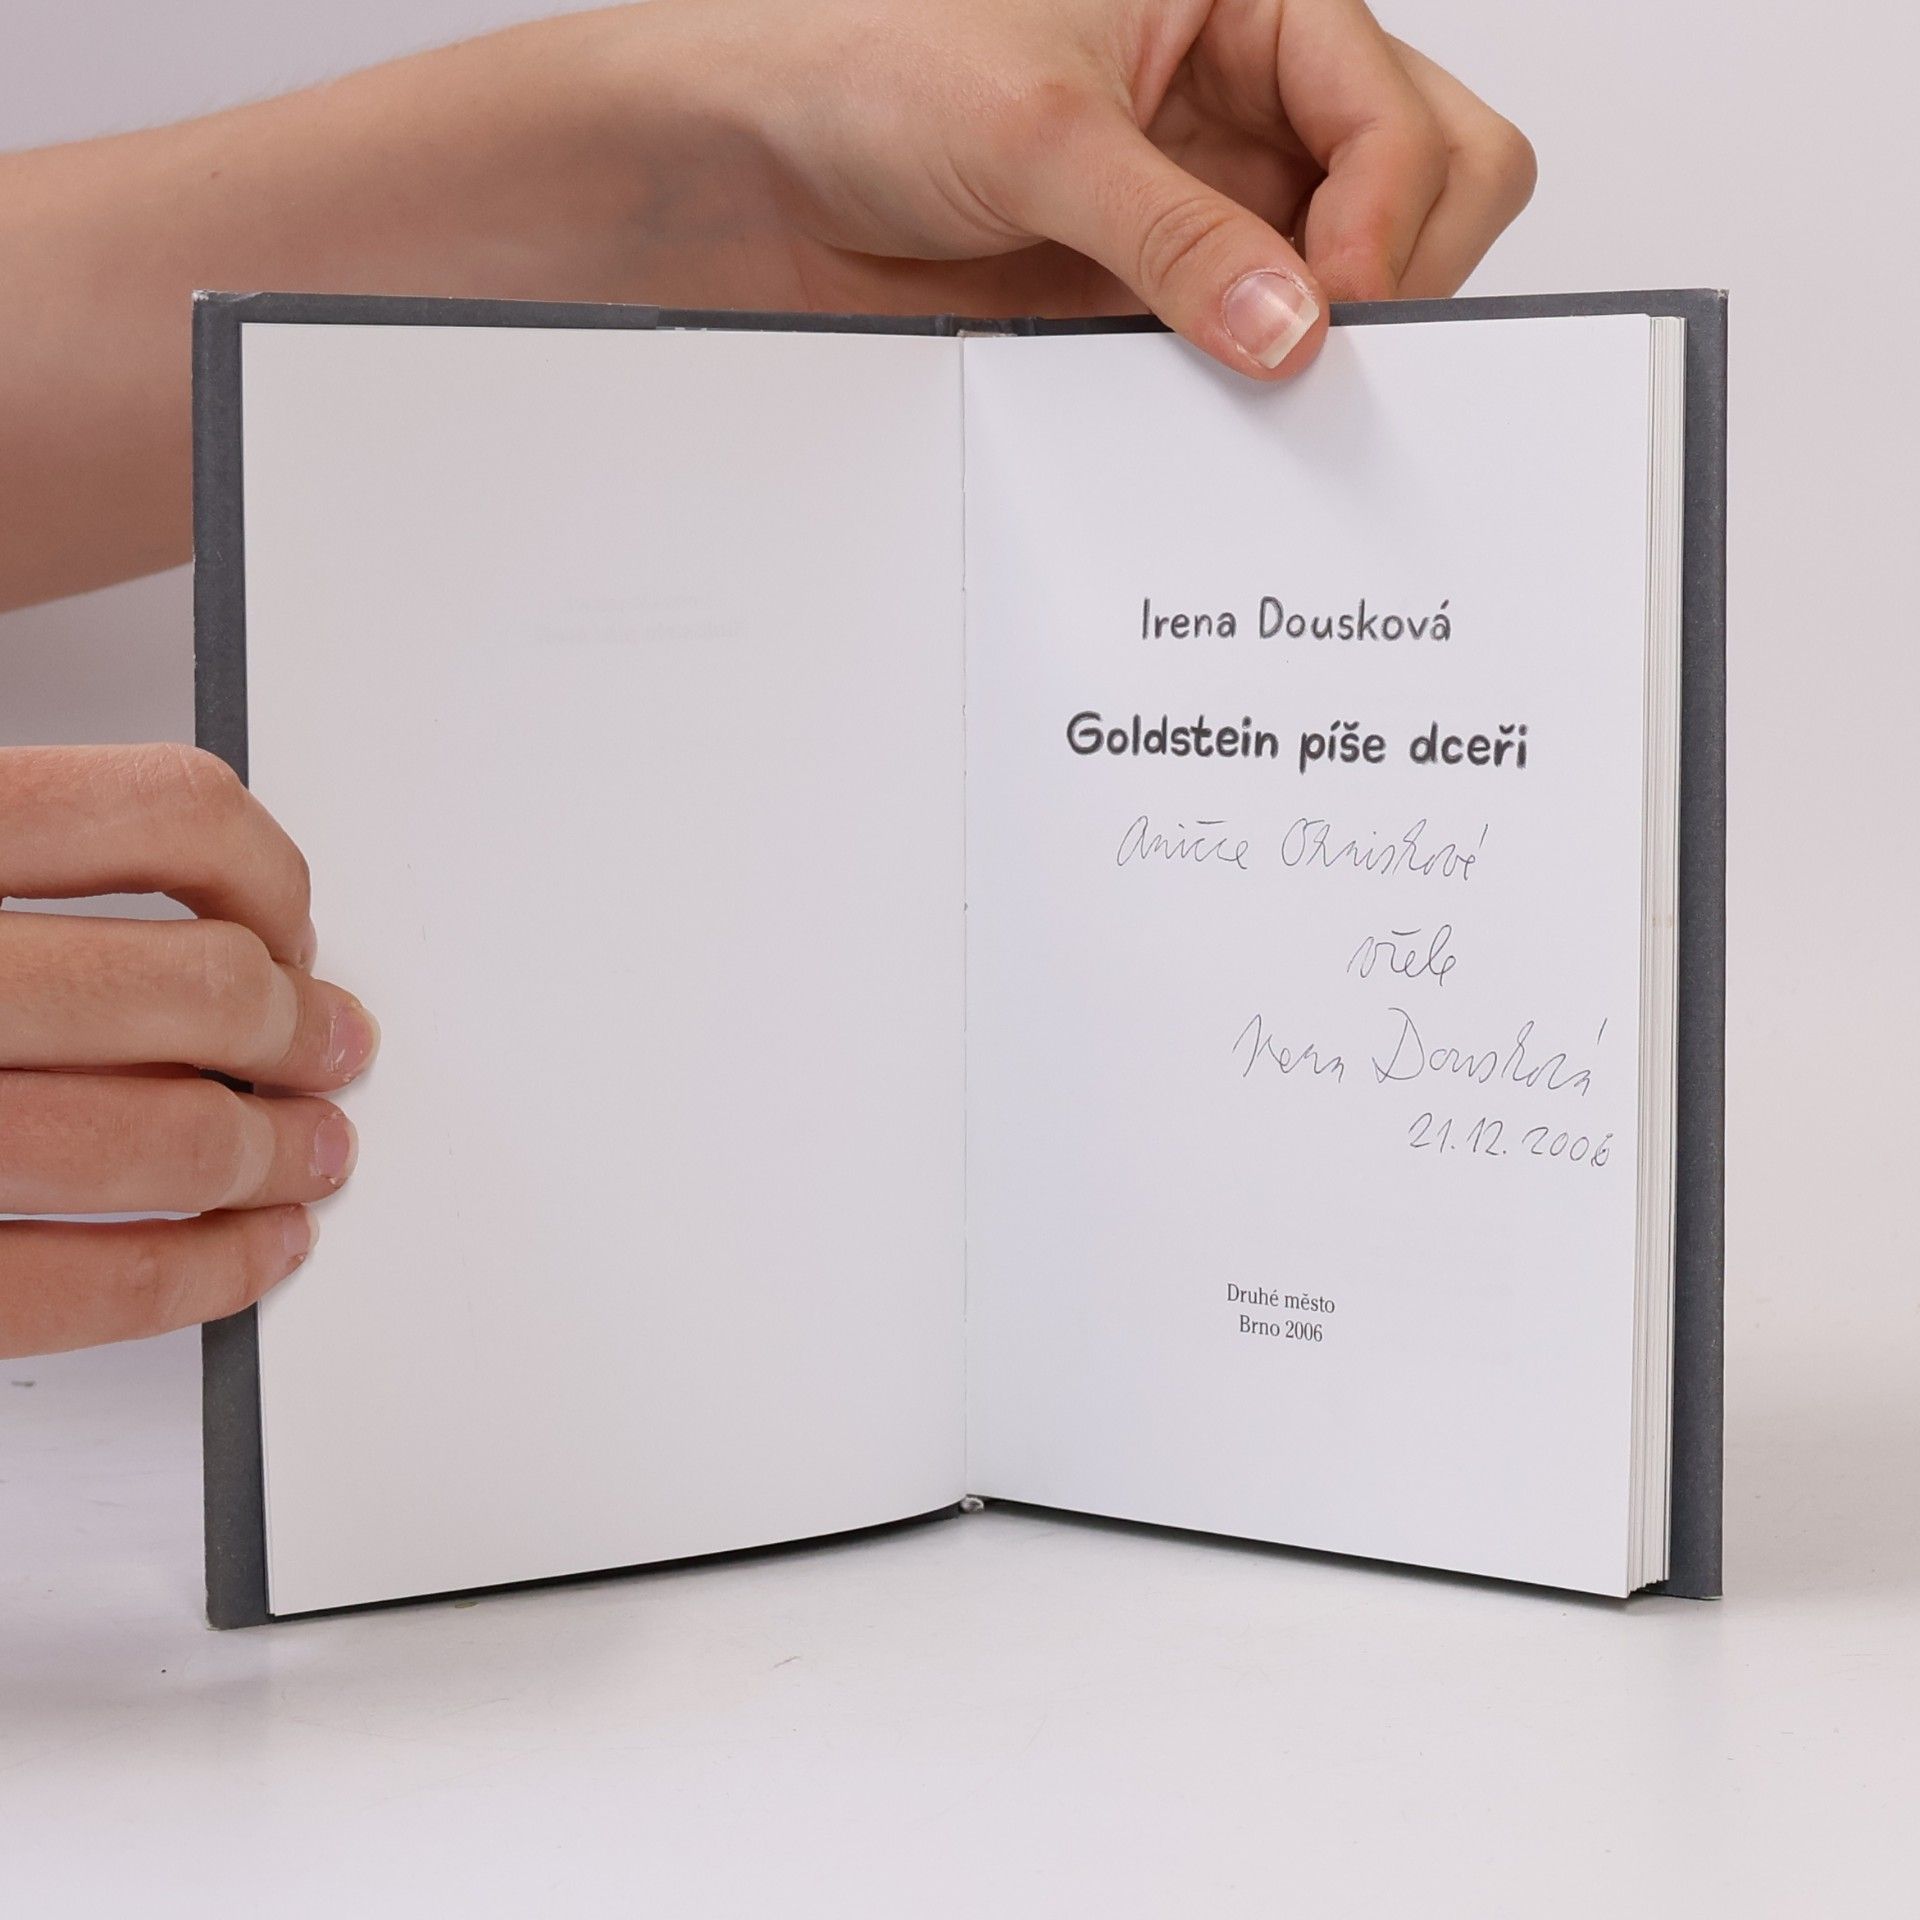 Irena Dousková
Goldstein píše dceři
Aničce
vřele
Irena Dousková
21.12.2006
Druhé město
Brno 2006